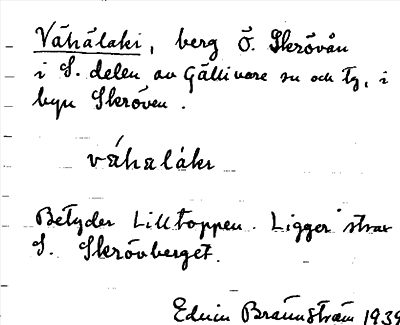 Vähälaki, berg Ö. Skrövån
i S. delen av Gällivare sn och tg, i
byn Skröven.
váhaláki
Betyder Lilltoppen. Ligger strax
S. Skrövberget.
Edvin Brännström 1939